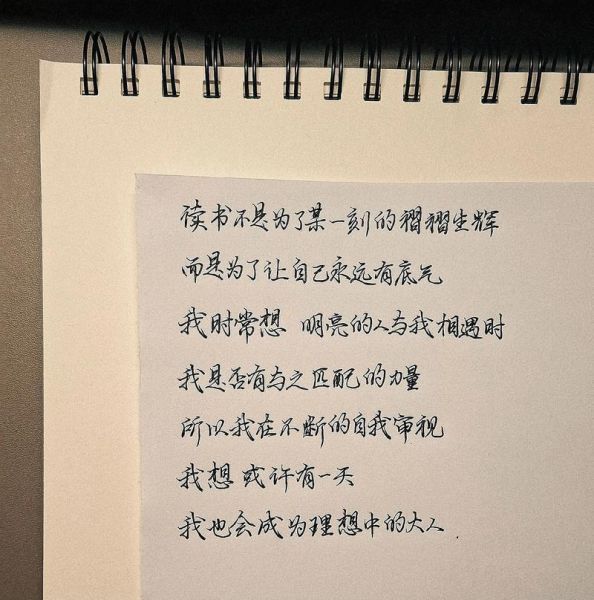 读书不是为了某一刻的褶褶生辉
而是为了让自己永远有底气
我时常想 明亮的人与我相遇时
我是否有与之匹配的力量
所以我在不断的自我审视
我想或许有一天
我也会成为理想中的大人.